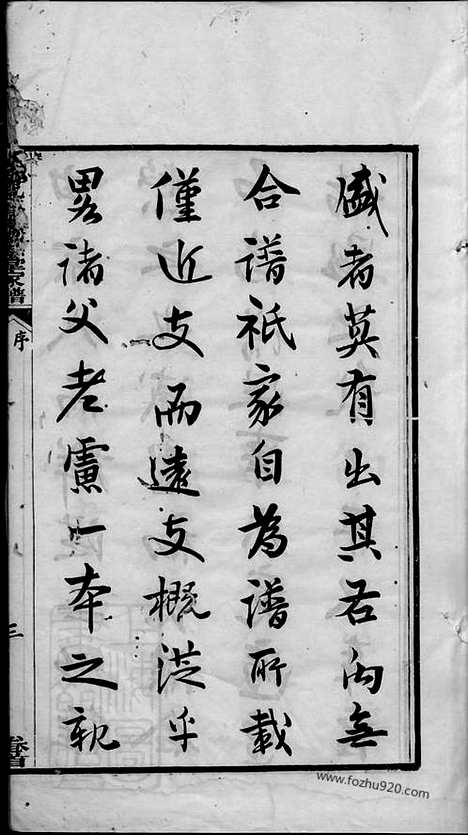 盛者莫有出其右向無
合譜祇家自為譜所載
僅近支而遠支概從乎
畧諸父老慮一本之親
家譜
序
三
www.fozhu920.com